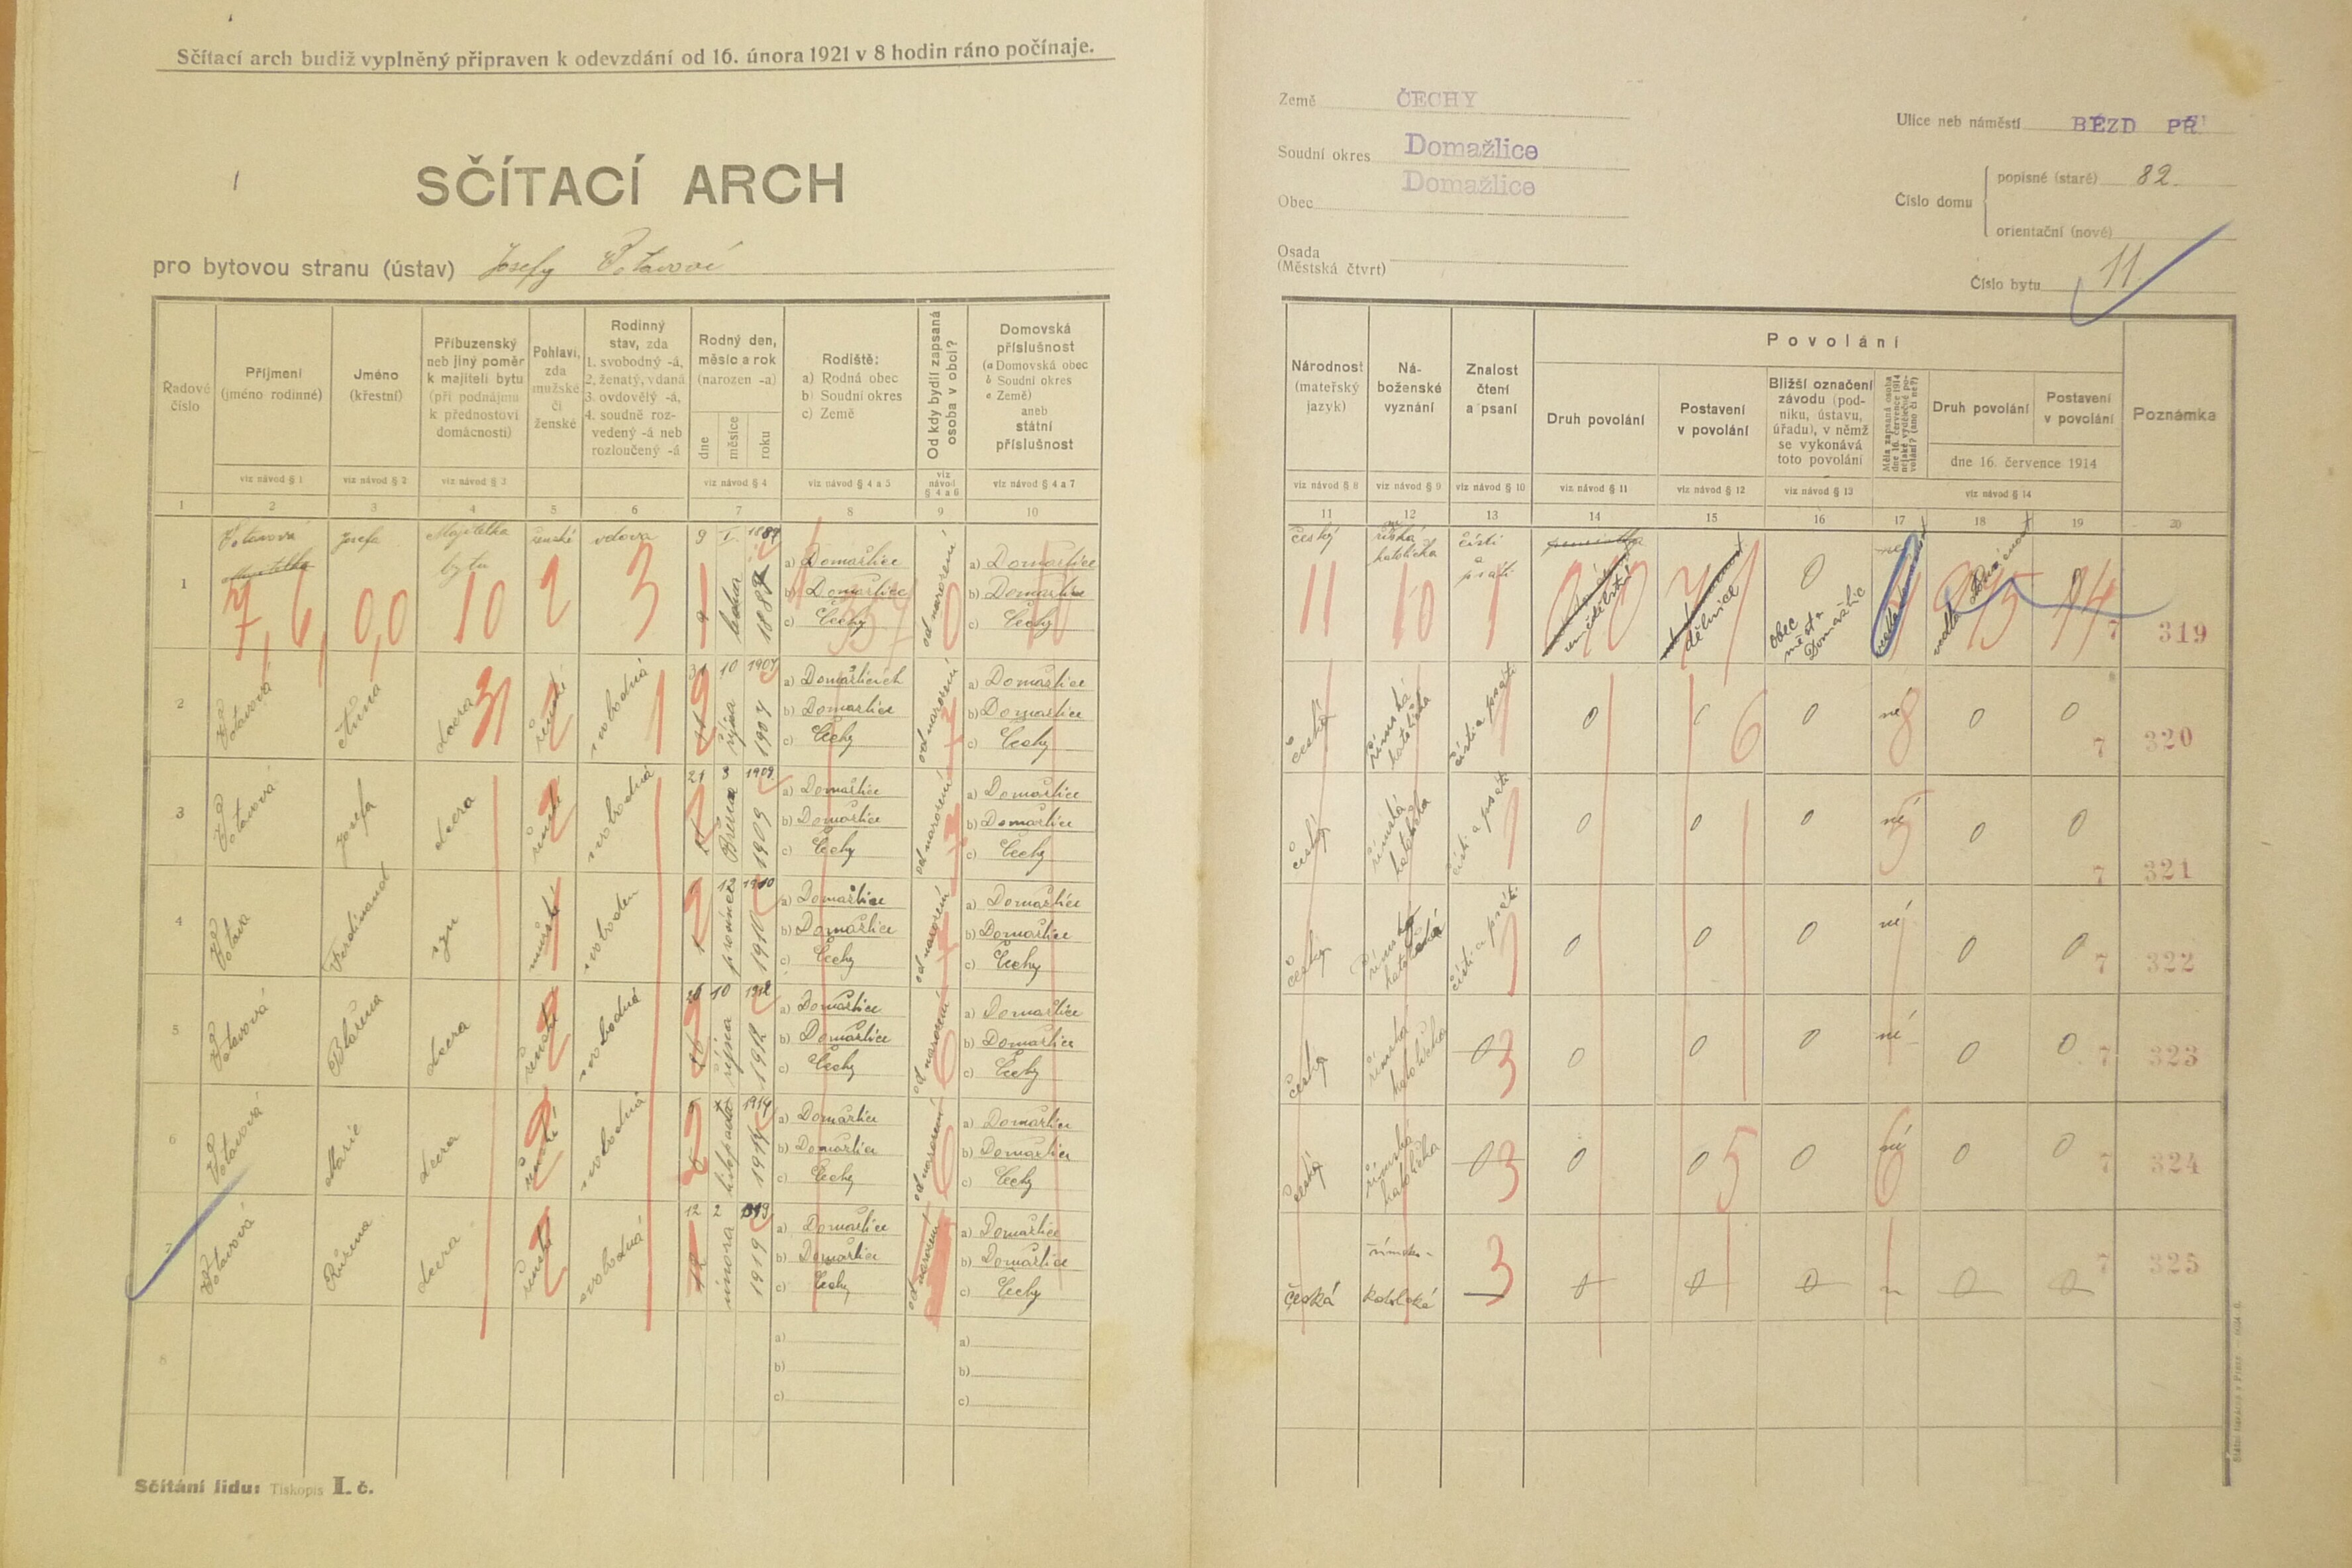 Sčítací arch budiž vyplněný připraven k odevzdání od 16. února 1921 v 8 hodin ráno počínaje.
SČÍTACÍ ARCH
pro bytovou stranu (ústav) Josefy Votavové
Země ČECHY
Soudní okres Domažlice
Obec Domažlice
Osada
(Městská čtvrt)
Ulice neb náměstí BEZD PŘ
Číslo domu
popisné (staré) 82
orientační (nové)
Číslo bytu 11
Řadové číslo
Příjmení (jméno rodinné)
Jméno (křestní)
Příbuzenský neb jiný poměr k majiteli bytu (při podnájmu k přednostovi domácnosti)
Pohlaví, zda mužské či ženské
Rodinný stav, zda
1. svobodný -á,
2. ženatý, vdaná
3. ovdovělý -á,
4. soudně roz-
vedený -á neb
rozloučený -á
Rodný den, měsíc a rok (narozen -a)
dne měsíce roku
Rodiště:
a) Rodná obec
b) Soudní okres
c) Země
Od kdy bydlí zapsaná osoba v obci?
Domovská příslušnost
(a Domovská obec
b Soudní okres
c Země)
aneb
státní
příslušnost
viz návod § 1 viz návod § 2 viz návod § 3 viz návod § 4 viz návod § 4 a 5 viz návod § 4 a 6 viz návod § 4 a 7
1 2 3 4 5 6 7 8 9 10
Národnost (mateřský jazyk)
Ná-
boženské
vyznání
Znalost čtení a psaní
Povolání
Druh povolání
Postavení v povolání
Bližší označení závodu (pod-
niku, ústavu,
úřadu), v němž
se vykonává
toto povolání
Měla zapsaná osoba dne 16. července 1914 nějaké výdělečné po-
volání? (ano či ne?)
Druh povolání
Postavení v povolání
dne 16. července 1914
Poznámka
viz návod § 8 viz návod § 9 viz návod § 10 viz návod § 11 viz návod § 12 viz návod § 13 viz návod § 14
11 12 13 14 15 16 17 18 19 20
1 Votavová Josefa Majitelka bytu ženské vdova 9 I. 1889
Majitelka
9 ledna
a) Domažlice
b) Domažlice
c) Čechy
od narození
a) Domažlice
b) Domažlice
c) Čechy
7, 6, 0,0 10 2 3
český římská katolička čísti psáti
zemědělství
dělnice
0
obec města Domažlic
ne
11 10 1
7 319
2 Votavová Anna dcera ženské svobodná 31 10 1907
října 1907
a) Domažlicích
b) Domažlice
c) Čechy
od narození
a) Domažlice
b) Domažlice
c) Čechy
česky římská katolička čísti a psáti 0 0 0 ne 0 0
7 320
3 Votavová Josefa dcera ženské svobodná 21 3 1909
21 Března 1909
a) Domažlice
b) Domažlice
c) Čechy
od narození
a) Domažlice
b) Domažlice
c) Čechy
česky římská katolička čísti a psáti 0 0 0 né 0 0
7 321
4 Votava Ferdinand syn mužské svoboden 1 12 1910
1 prosince 1910
a) Domažlice
b) Domažlice
c) Čechy
od narození
a) Domažlice
b) Domažlice
c) Čechy
česky římská čísti a psáti 0 0 0 né 0 0
7 322
5 Votavová Blažena dcera ženské svobodná 26 10 1912
26 října 1912
a) Domažlice
b) Domažlice
c) Čechy
od narození
a) Domažlice
b) Domažlice
c) Čechy
česky římská katolička 0 3 0 0 0 né 0 0
7 323
6 Votavová Marie dcera ženské svobodná 1914
listopadu 1914
a) Domažlice
b) Domažlice
c) Čechy
od narození
a) Domažlice
b) Domažlice
c) Čechy
česky římská katolička 0 3 0 0 0 né 0 0
7 324
7 Votavová Růžena dcera ženské svobodná 12 2 1919
12 února 1919
a) Domažlice
b) Domažlice
c) Čechy
od narození
a) Domažlice
b) Domažlice
c) Čechy
česká římsko- katolická 3 0 0 0 0 0
7 325
8
a)
b)
c)
a)
b)
c)
Sčítání lidu: Tiskopis I. č.